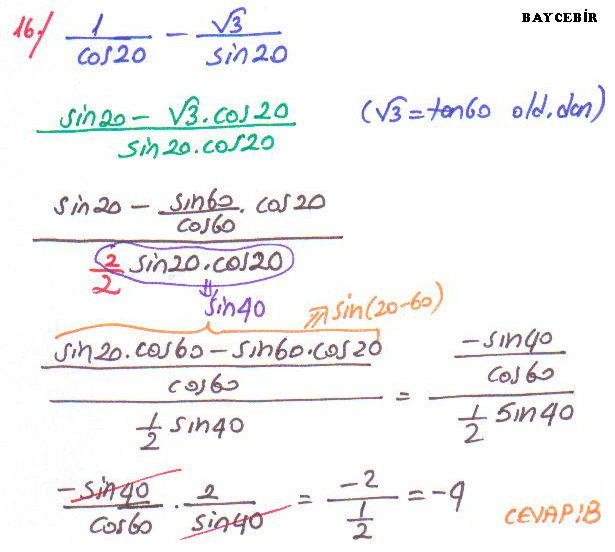 BAYCEBİR
16/ 1/cos20 − √3/sin20
(sin20 − √3.cos20)/(sin20.cos20) (√3 = tan60 old.dan)
(sin20 − sin60/cos60 . cos20)/(2/2 sin20.cos20)
⇓
sin40
⇗ sin(20−60)
((sin20.cos60 − sin60.cos20)/cos60)/(1/2 sin40) = (−sin40/cos60)/(1/2 sin40)
−sin40/cos60 . 2/sin40 = −2/(1/2) = −4
CEVAP:B